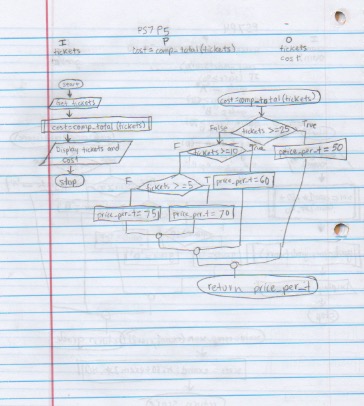 PS7 P5
I P O
tickets cost=comp_total(tickets) tickets
cost
start
Get tickets
cost=comp_total(tickets)
Display tickets and
cost
stop
cost=comp_total(tickets)
tickets>=25
False
True
tickets>=10
F
True
price_per_t=50
tickets>=5
F
T
price_per_t=60
price_per_t=75
price_per_t=70
return price_per_t